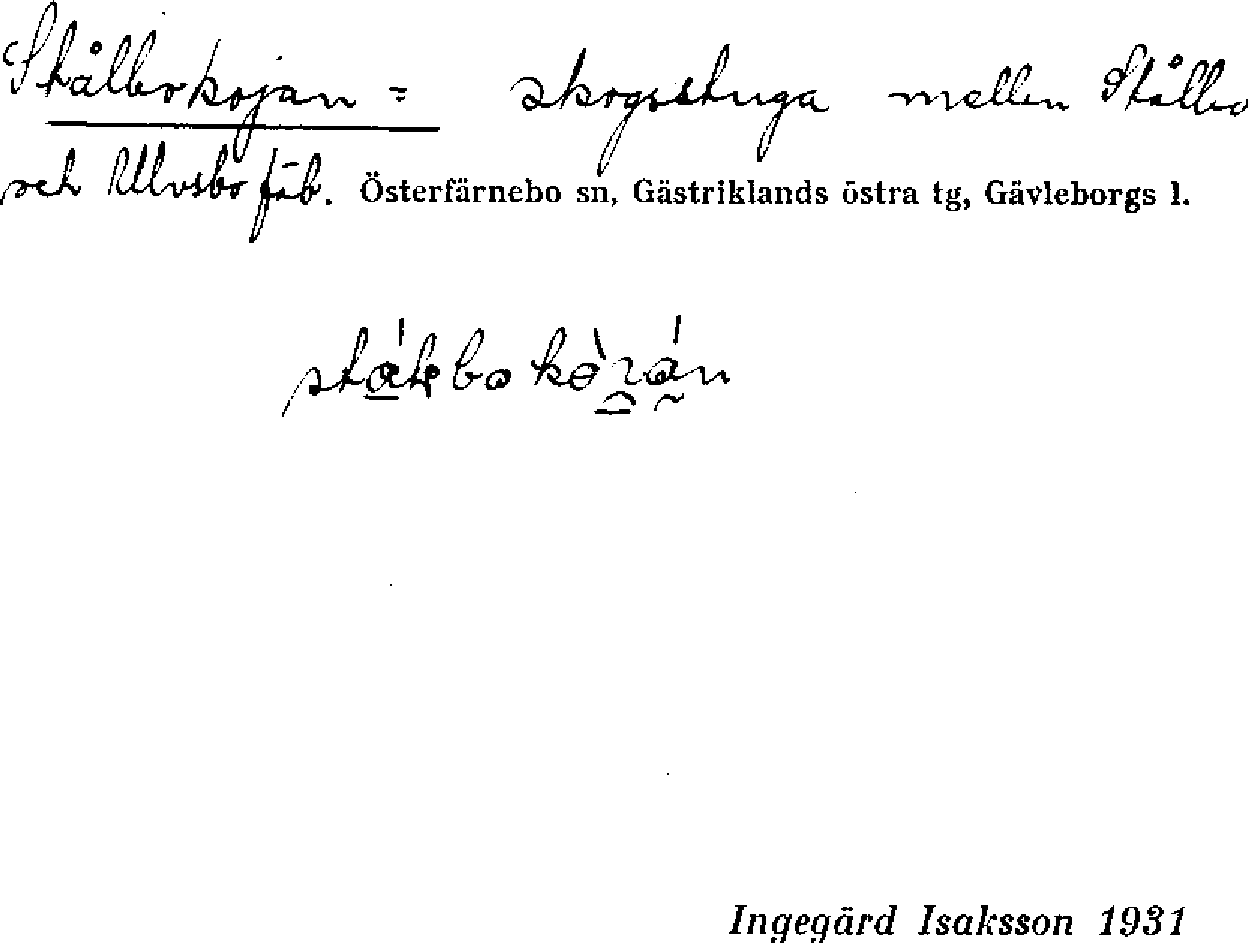 Stålbokojan = skogsstuga mellan Stålbo
och Ulvsbo fäb. Österfärnebo sn, Gästriklands östra tg, Gävleborgs l.
Ingegärd Isaksson 1931